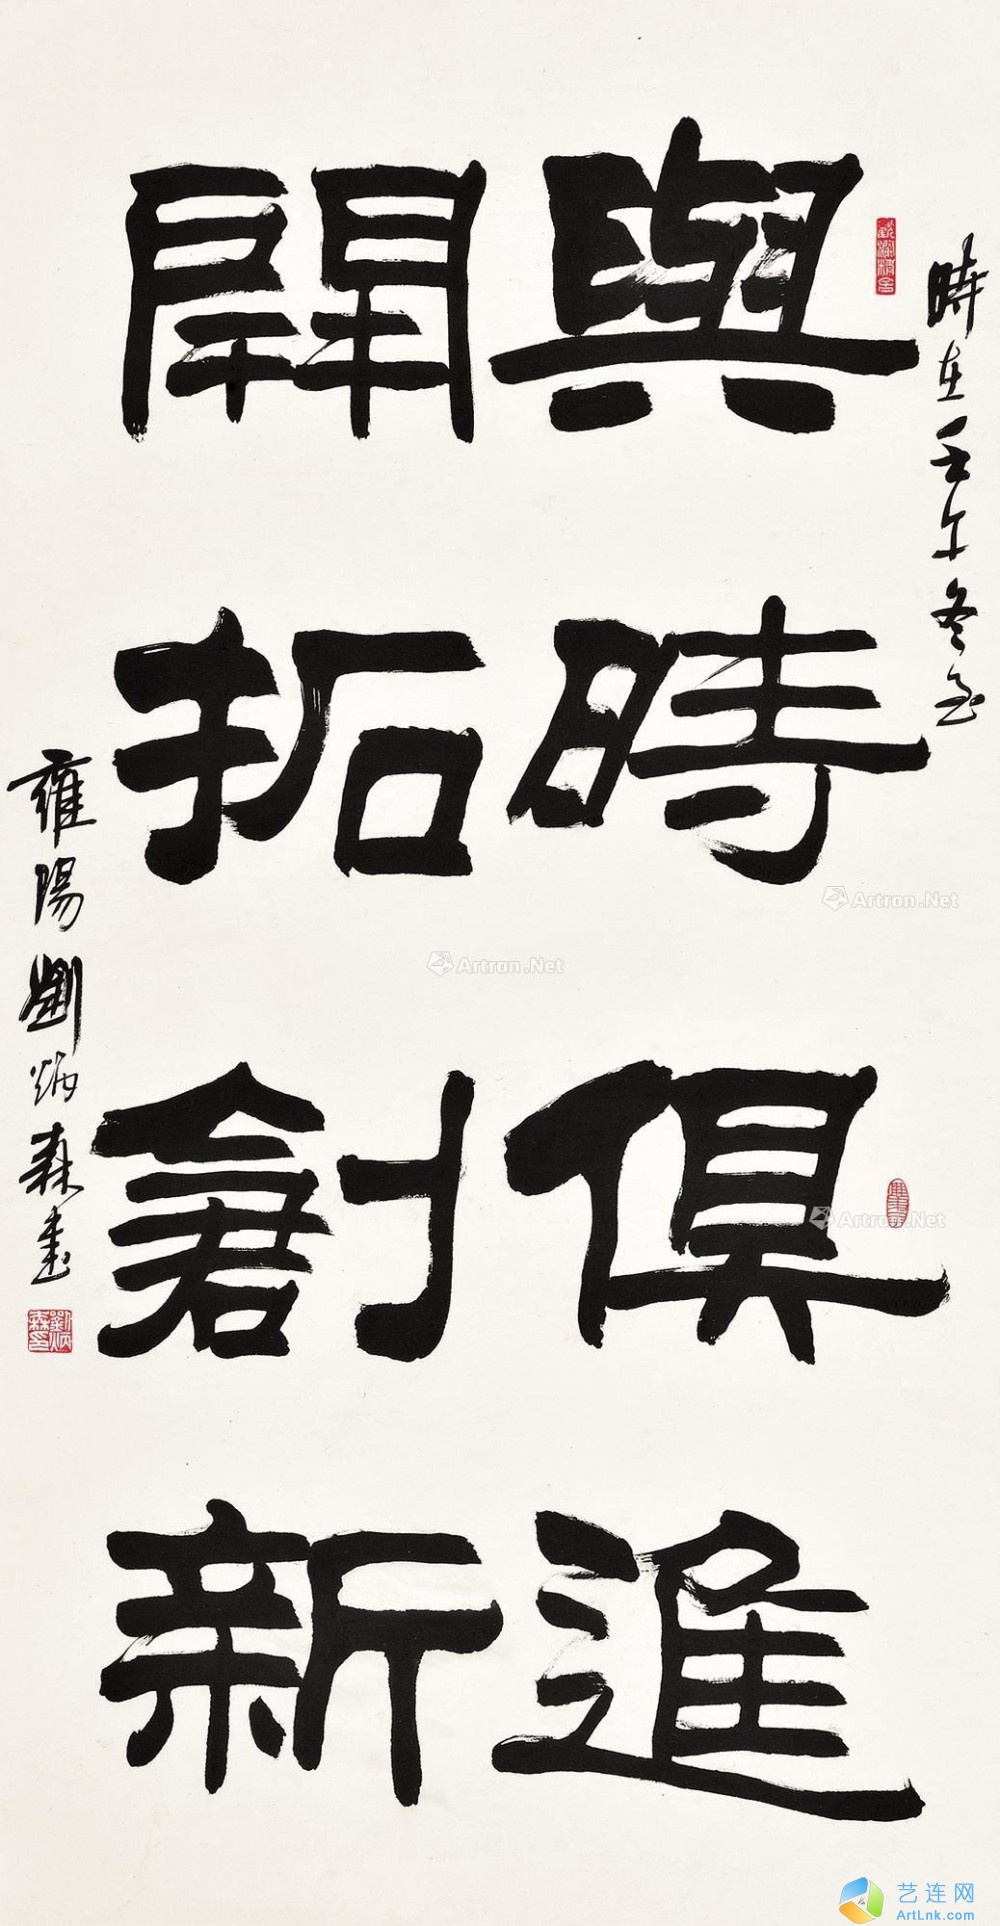 時在壬午冬至
與時俱進
開拓創新
雍陽劉炳森書
劉炳森印
Artron.Net
Artron.Net
Artron.Net
艺连网
ArtLnk.com